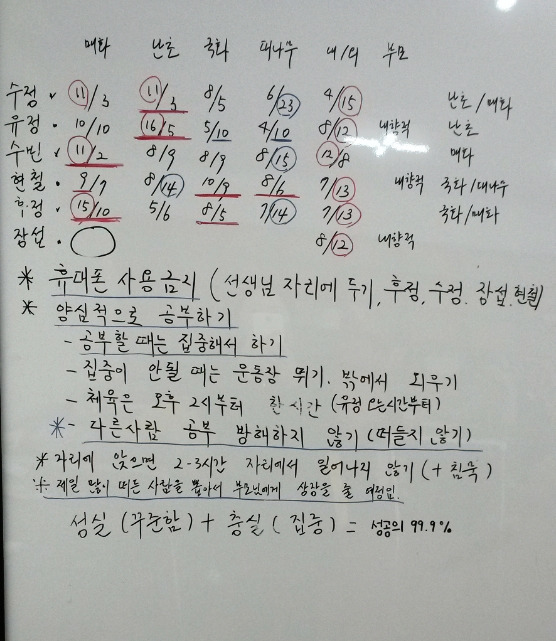 매화 난초 국화 대나무 내/외 부모
수정 11/3 11/3 8/5 6/23 4/15 난초/매화
유정 10/10 16/5 5/10 4/10 8/12 내향적 난초
수빈 11/2 8/9 8/9 8/15 12/8 매화
현철 9/7 8/14 10/9 8/6 7/13 내향적 국화/대나무
후정 15/10 5/6 8/5 7/14 7/13 국화/매화
장섭 8/12 내향적
* 휴대폰 사용금지 (선생님 자리에 두기, 후정, 수정. 장섭, 현철)
* 양심적으로 공부하기
- 공부할 때는 집중해서 하기
- 집중이 안될 때는 운동장 뛰기. 밖에서 외우기
- 체육은 오후 2시부터 한시간 (유정 오는시간부터)
*- 다른사람 공부 방해하지 않기 (떠들지 않기)
* 자리에 앉으면 2-3시간 자리에서 일어나지 않기 (+ 침묵)
* 제일 많이 떠든 사람을 뽑아서 부모님에게 상장을 줄 예정임.
성실 (꾸준함) + 충실 (집중) = 성공의 99.9%